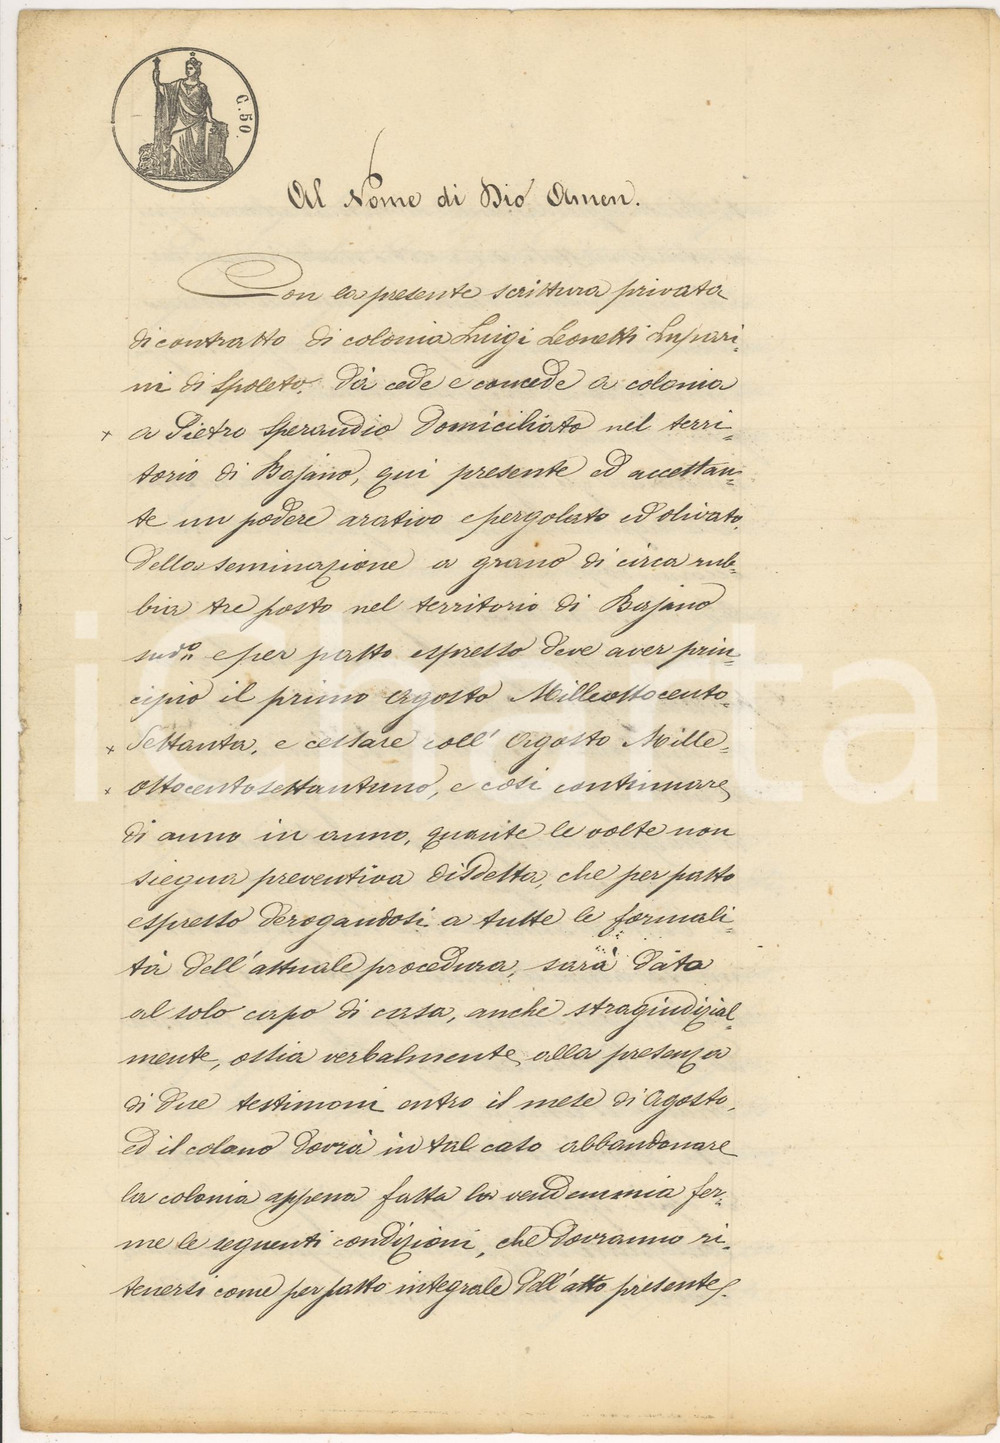 C. 50.
Al Nome di Dio Amen.
Con la presente scrittura privata
di contratto di colonia Luigi Leonetti Lupari-
ni di Spoleto. dà cede e concede a colonia
+ a Pietro Sperandio domiciliato nel terri-
torio di Bajano, qui presente ed accettan-
te un podere arativo e pergolato ed olivato,
della seminazione a grano di circa rub-
bia tre posto nel territorio di Bajano
sudº e per patto espresso deve aver prin-
cipio il primo Agosto Milleottocento-
+ Settanta, e cessare coll' Agosto Mille-
+ ottocentosettantuno, e così continuare
di anno in anno, quante le volte non
siegua preventiva disdetta, che per patto
espresso derogandosi a tutte le formali-
tà dell'attuale procedura, sarà data
al solo capo di casa, anche stragiudizial-
mente, ossia verbalmente alla presenza
di due testimoni entro il mese di Agosto,
ed il colono dovrà in tal caso abbandonare
la colonia appena fatta la vendemmia fer-
me le seguenti condizioni, che dovranno ri-
tenersi come per patto integrale dell'atto presente.
iCharta